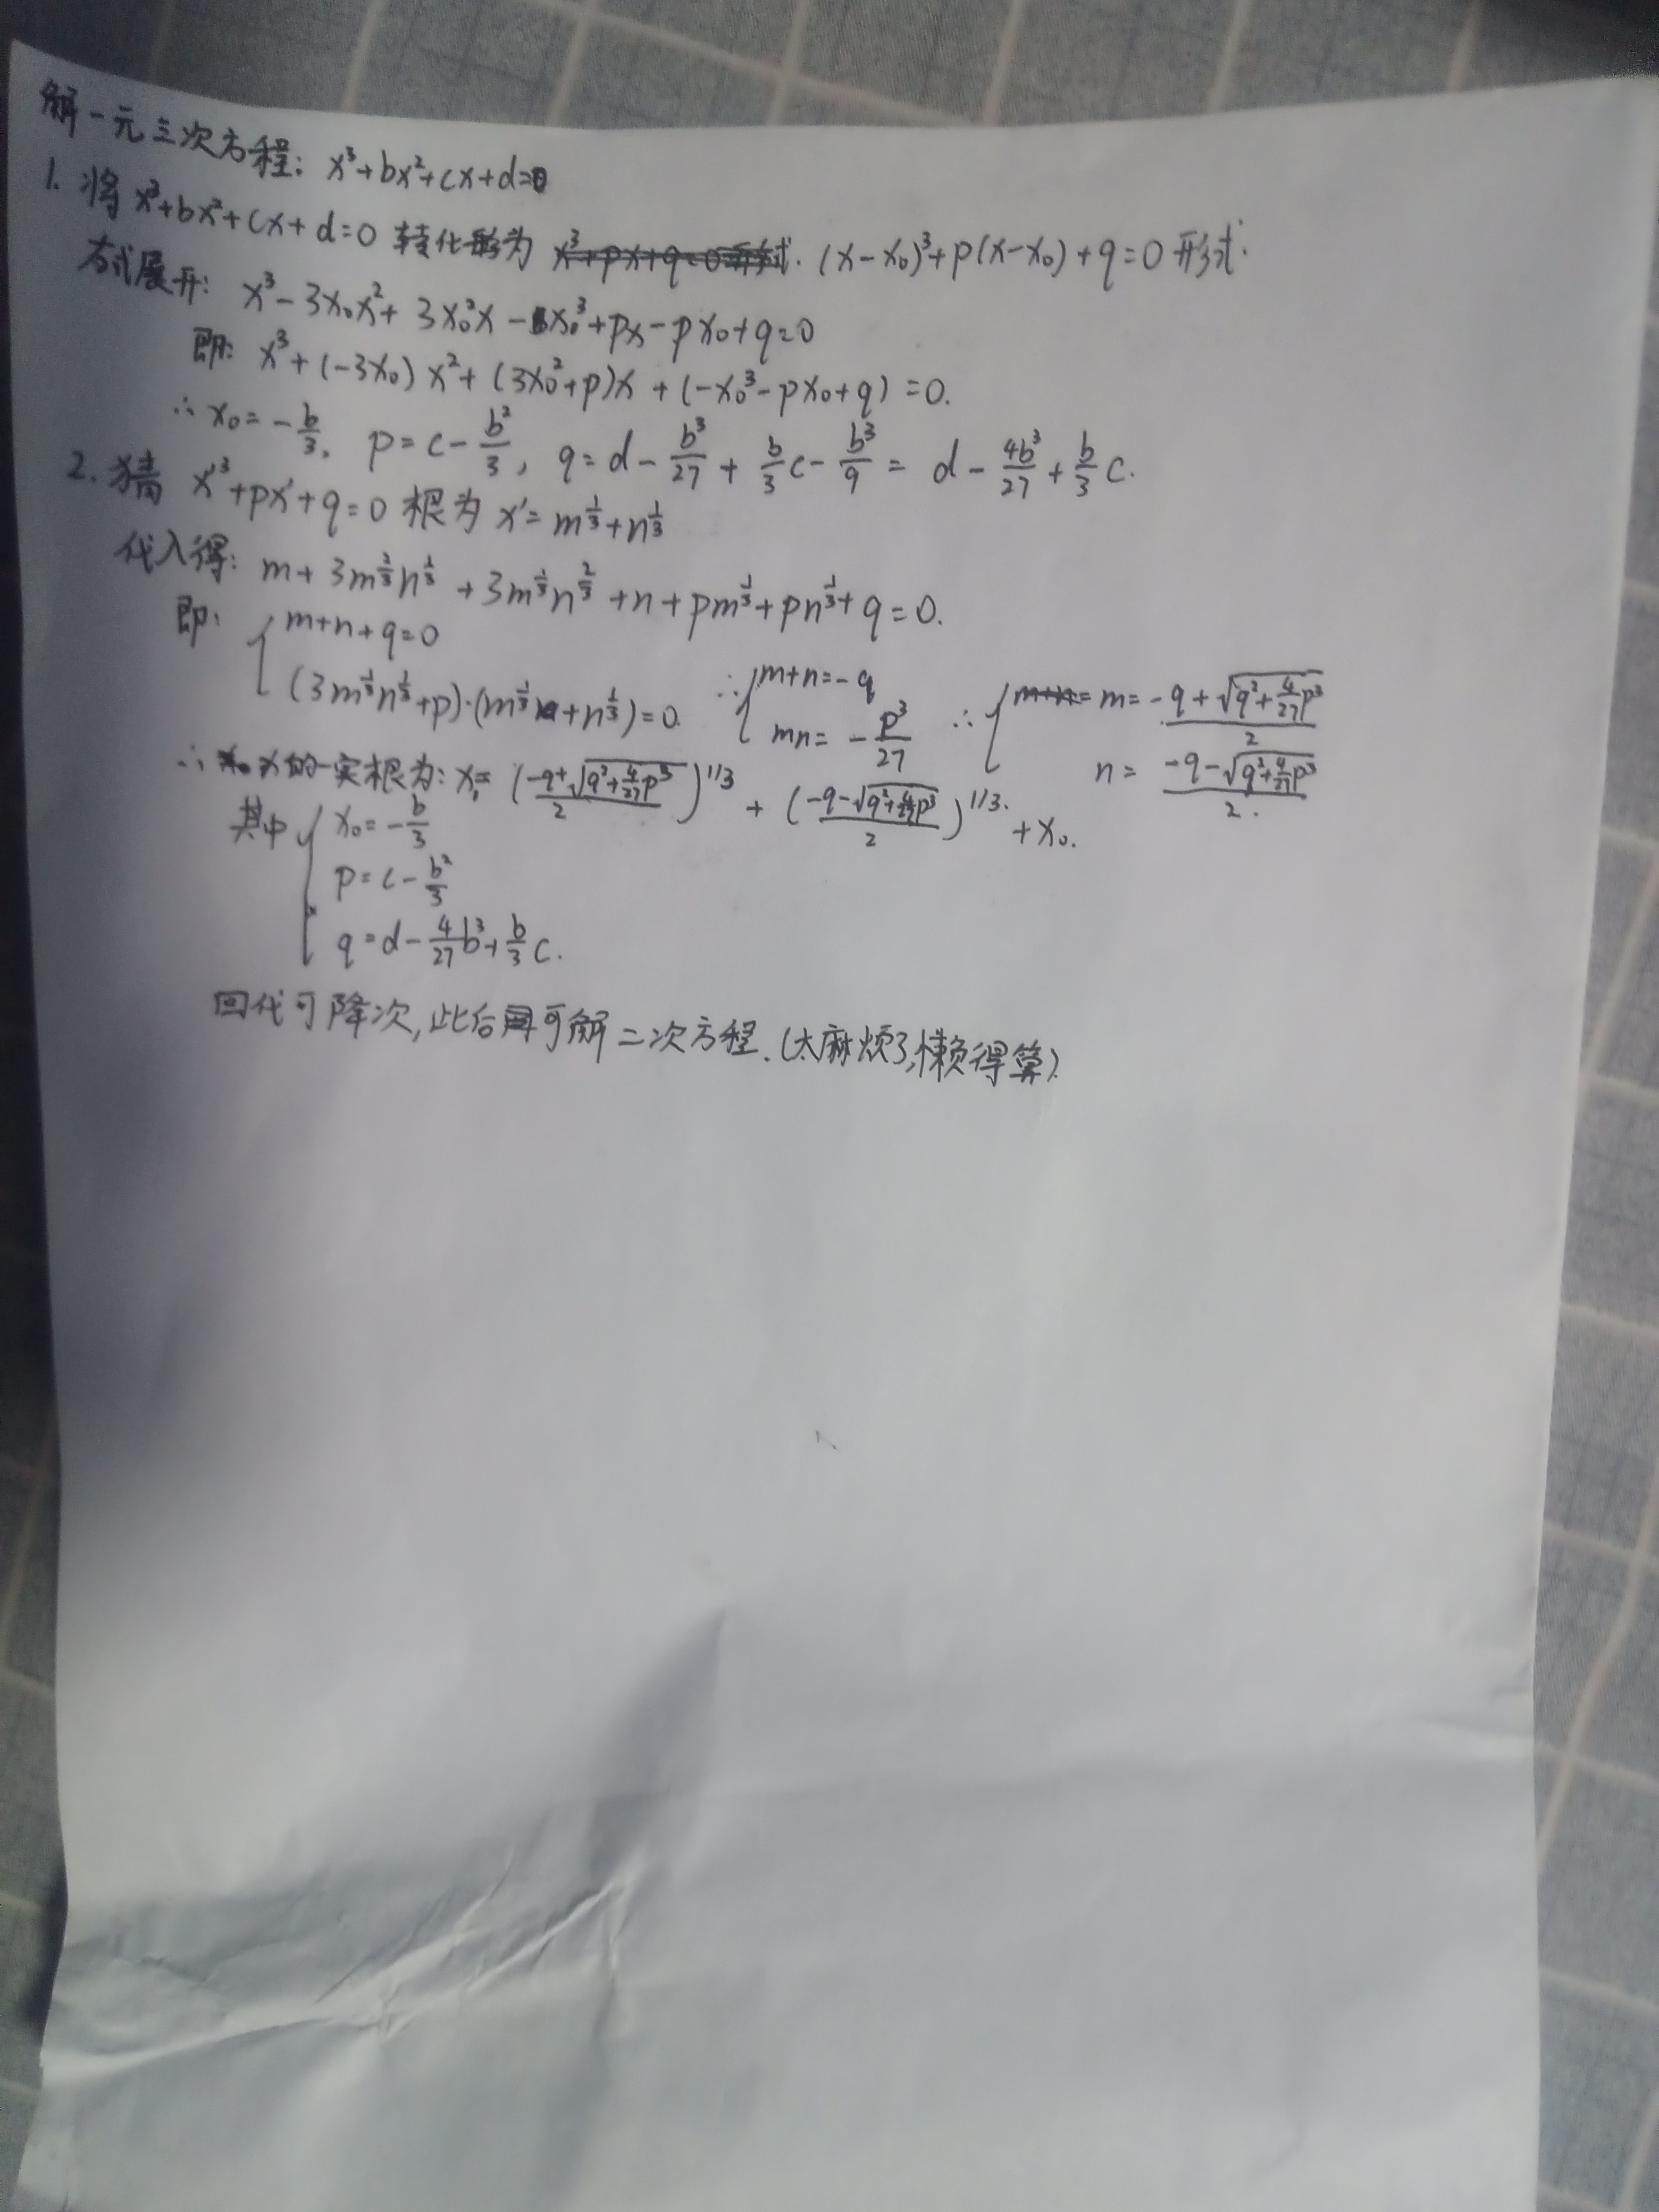 解一元三次方程: x³+bx²+cx+d=0
1. 将 x³+bx²+cx+d=0 转化为 x³+px+q=0形式. (x-x₀)³+p(x-x₀)+q=0 形式.
方式展开: x³-3x₀x²+3x₀²x-x₀³+px-px₀+q=0
即: x³+(-3x₀)x²+(3x₀²+p)x+(-x₀³-px₀+q)=0.
∴ x₀=-b/3, p=c-b²/3, q=d-b³/27+b/3 c-b³/9=d-4b³/27+b/3 c.
2. 猜 x'³+px'+q=0 根为 x'=m^(1/3)+n^(1/3)
代入得: m+3m^(2/3)n^(1/3)+3m^(1/3)n^(2/3)+n+pm^(1/3)+pn^(1/3)+q=0.
即: { m+n+q=0
(3m^(1/3)n^(1/3)+p)·(m^(1/3)+n^(1/3))=0 ∴{ m+n=-q
mn=-p³/27 ∴{ m=(-q+√(q²+4/27 p³))/2
n=(-q-√(q²+4/27 p³))/2.
∴ x的一实根为: x₁=((-q+√(q²+4/27 p³))/2)^(1/3)+((-q-√(q²+4/27 p³))/2)^(1/3)+x₀.
其中{ x₀=-b/3
p=c-b²/3
q=d-4/27 b³+b/3 c.
回代可降次,此后可解二次方程.(太麻烦了,懒得算).